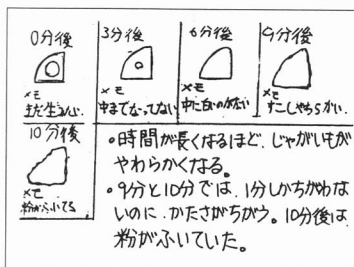 0分後
3分後
6分後
9分後
メモ
まだ生みたい.
メモ
中までなってない
メモ
中に白いのがない
メモ
すこしやわらかい.
10分後
メモ
粉がふいてる
•時間が長くなるほど、じゃがいもが
やわらかくなる。
•9分と10分では、1分しかちがわな
いのに、かたさがちがう。10分後は
粉がふいていた。